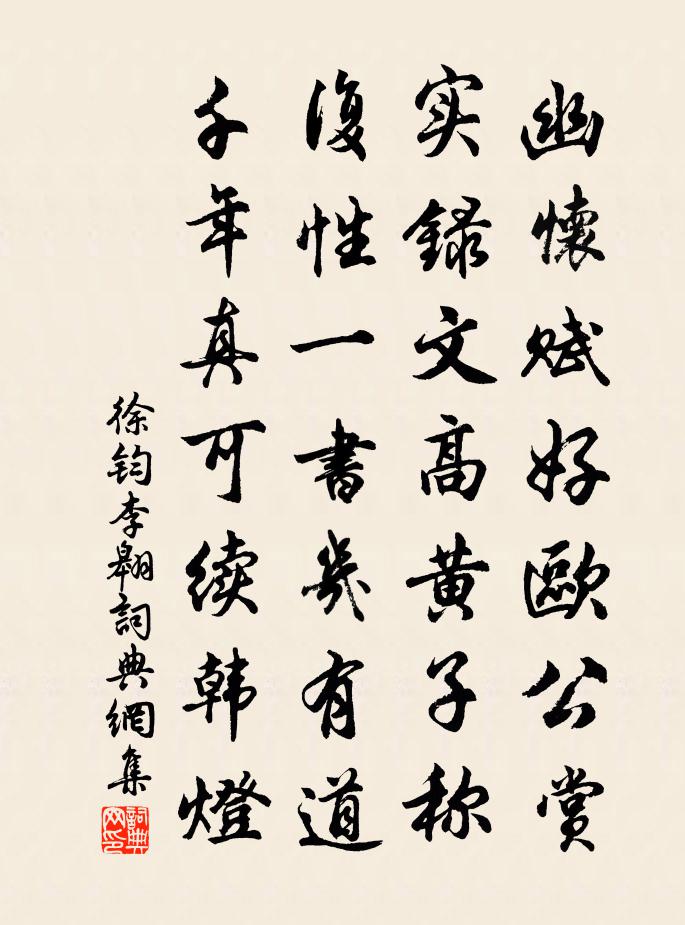 幽懷赋好歐公賞
实録文高黄子称
復性一書幾有道
千年真可续韩燈
徐鈞李翱詞典網集
詞典网印